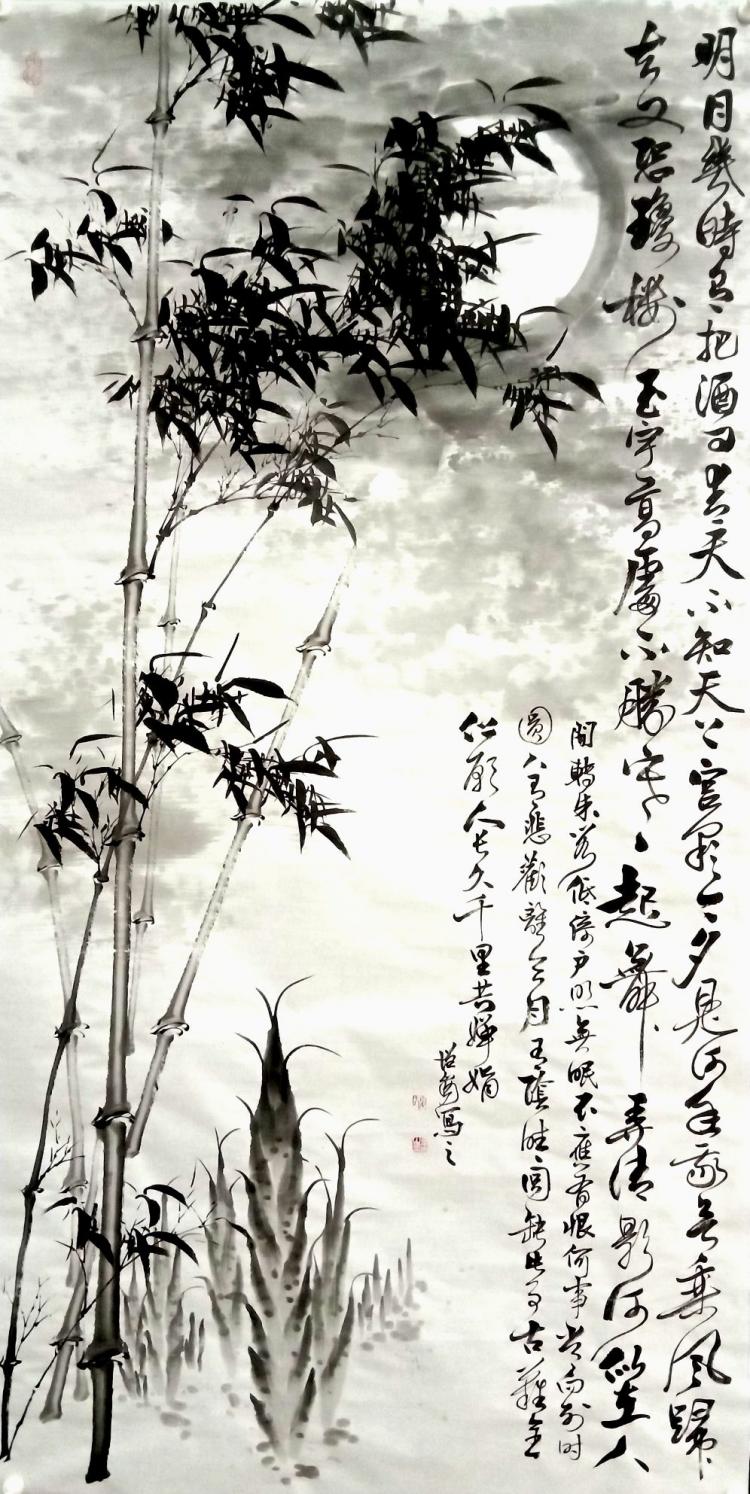 明月幾時有把酒问青天不知天上宫阙今夕是何年我欲乘風歸
去又恐瓊樓玉宇高處不勝寒起舞弄清影何似在人
間轉朱阁低绮户照無眠不應有恨何事长向别时
圓人有悲歡離合月有陰晴圆缺此事古難全
但願人长久千里共婵娟
寫之